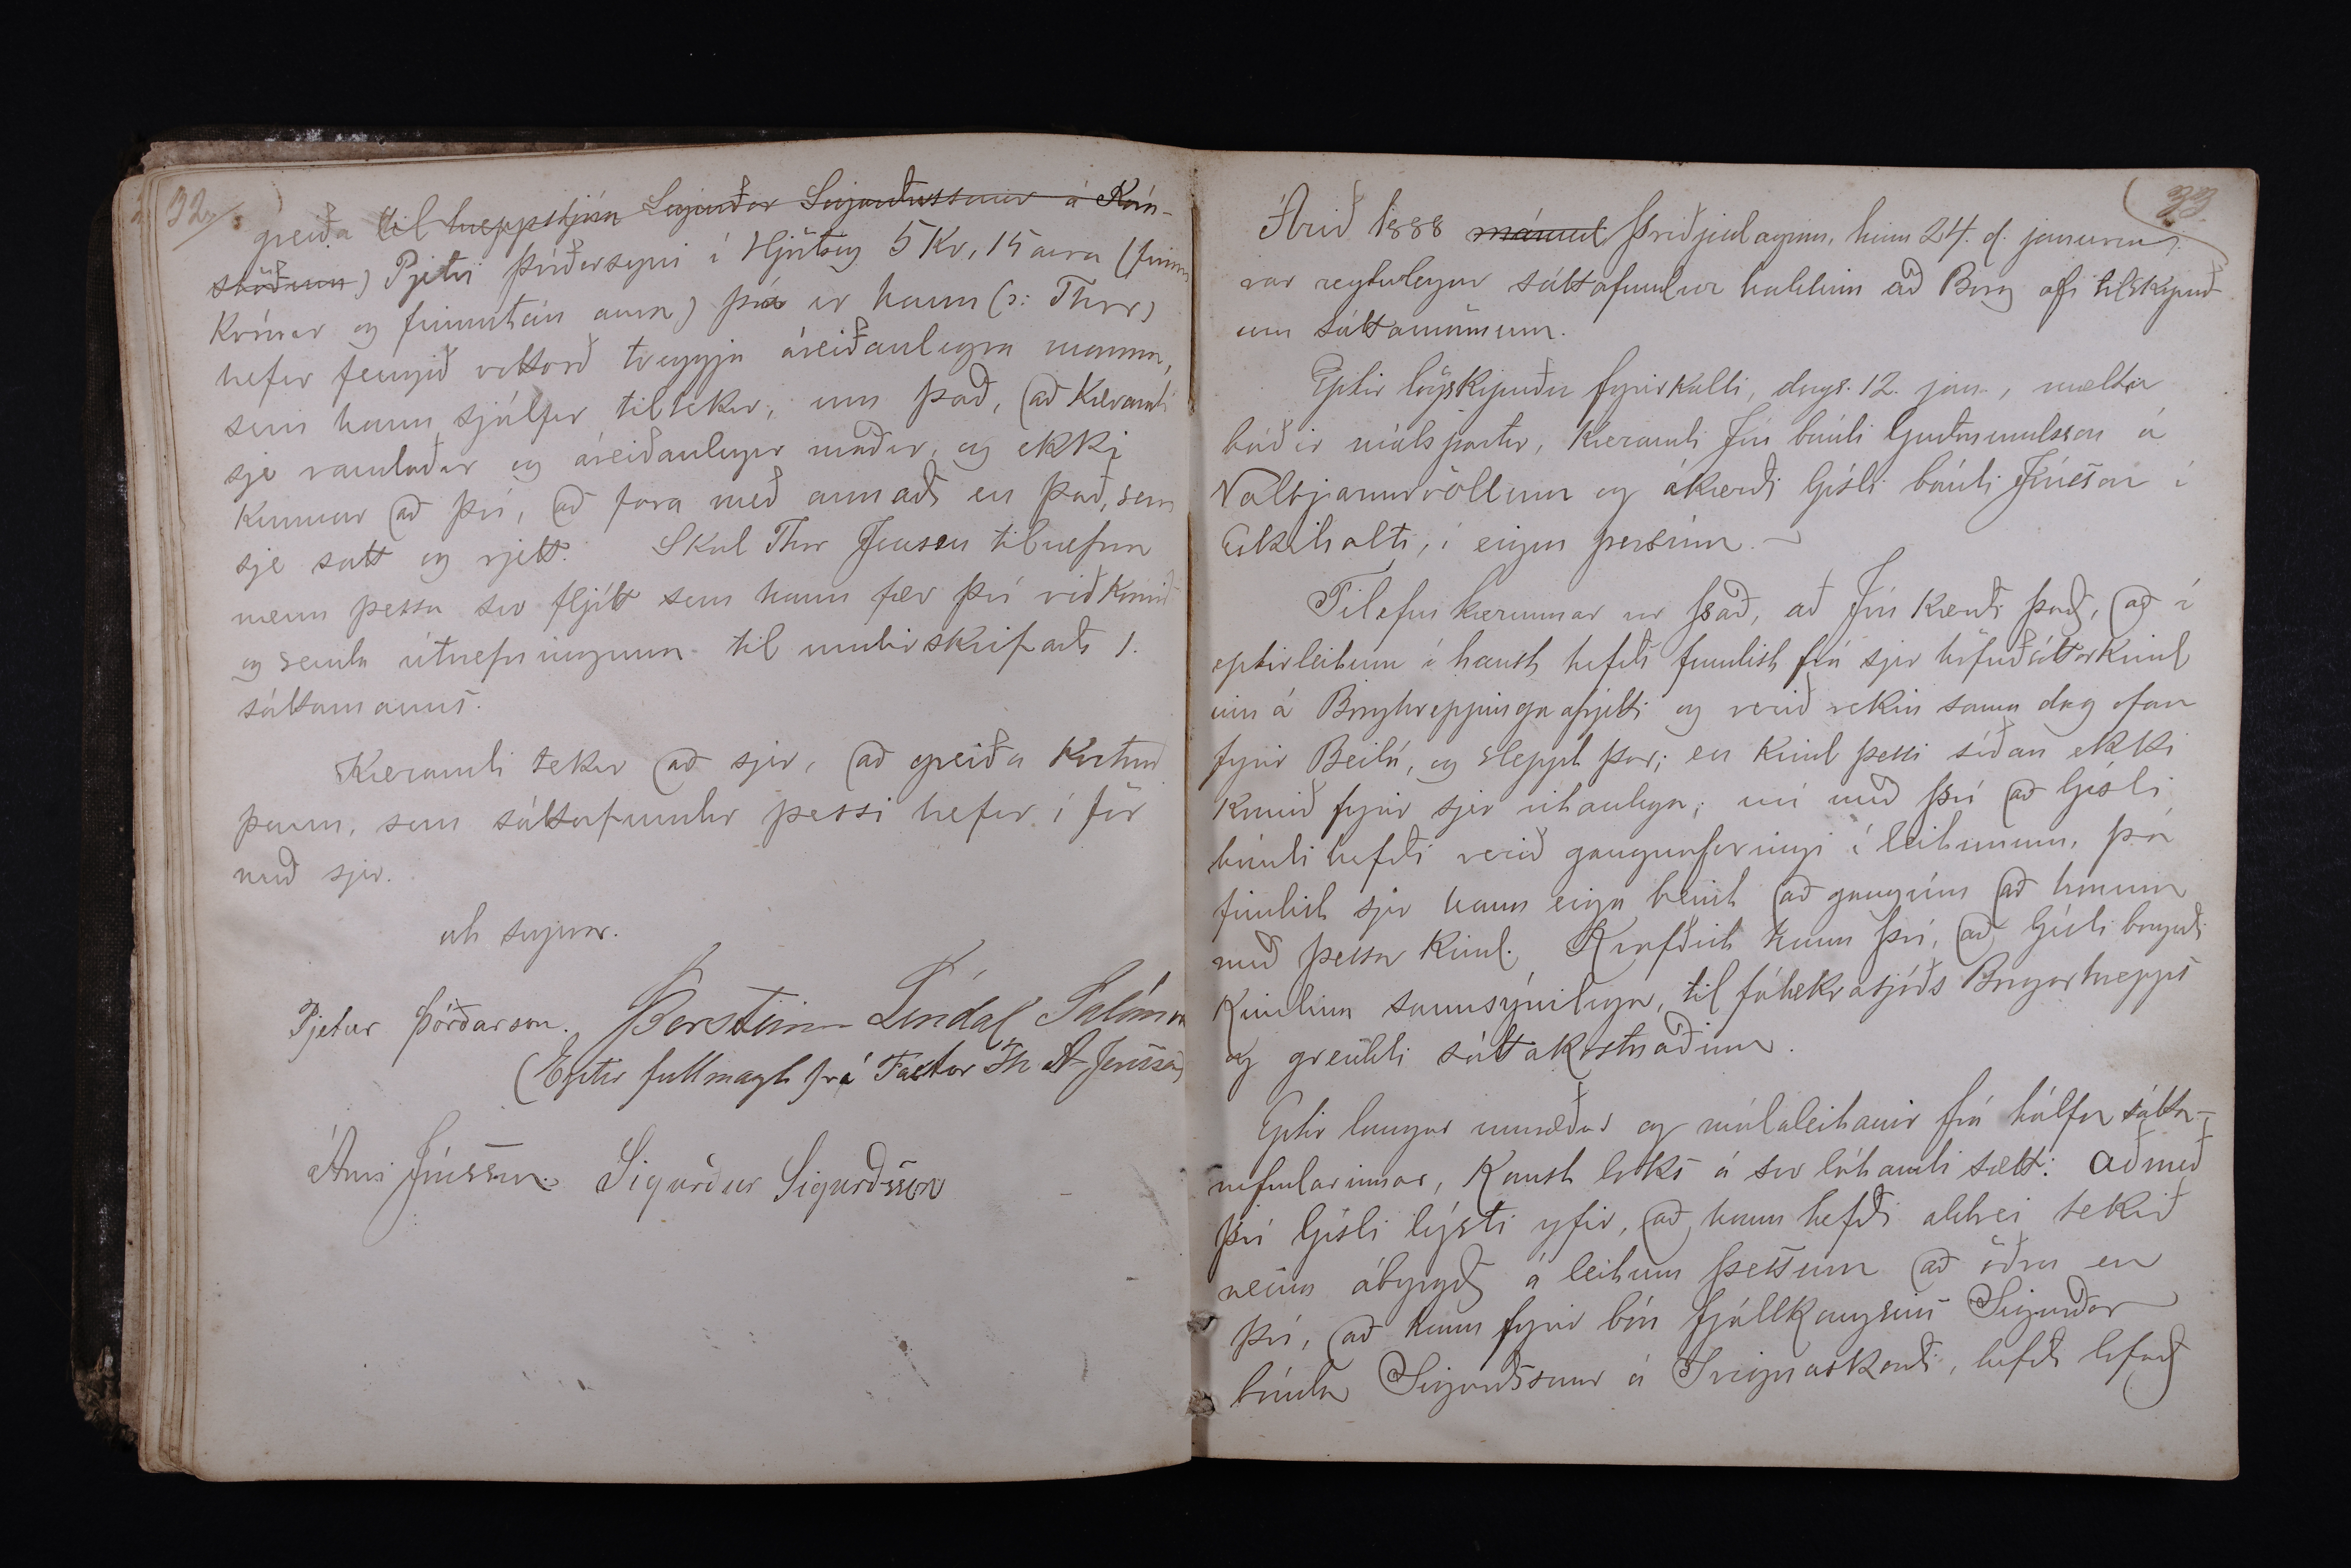 32
greiða til hreppstjóra Sigurðar Sigurðssonar á Kára-
stöðum) Pjetri Þórðarsyni í Hjörtsey 5 Kr, 15 aura (fimm
krónur og fimmtán aura) þá er hann (ɔ: Thor)
hefur fengið vottorð tveggja áreiðanlegra manna,
sem hann sjálfur tiltekur, um það, að kærandi
sje vandaður og áreiðanlegur maður, og ekki
kunnur að því, að fara með annað en það, sem
sje satt og rjett. Skal Thor Jensen tilnefna
menn þessa svo fljótt sem hann fær því viðkomið
og senda útnefninguna til undirskrifaðs 1.
sáttamanns.
Kærandi tekur að sjer, að greiða kostnað
þann, sem sáttafundur þessi hefur í för
með sjer.
uts supra.
Pjetur Þórðarson. Þorsteinn Líndal Salómon
(Eptir fullmagt frá Factor Th A Jensen)
Árni Jónsson. Sigurður Sigurðsson
33
Árið 1888 mánud þriðjudaginn, hinn 24. d. janúarm.
var reglulegur sáttafundur haldinn að Borg af tilskipuð-
um sáttamönnum.
Eptir lögskipuðu fyrirkalli, dags. 12. jan., mættu
báðir málspartar, kærandi Jón bóndi Guðmundsson á
Valbjarnarvöllum og ákærði Gísli bóndi Jónsson í
Eskiholti, í eigin persónu.
Tilefni kærunnar var það, að Jón kærði það, að í
eptirleitum í haust hefði fundist frá sjer höfuðsóttarkind
inn á Borghreppingaafrjetti og verið rekin sama dag ofan
fyrir Beilá, og sleppt þar; en kind þessi síðan ekki
komið fyrir sjer vitanlega; nú með því að Gísli
bóndi hefði verið gangnaforingi í leitunum, þá
findist sjer hann eiga beint að ganga að honum
með þessa kind. Krafðist hann því, að Gísli borgaði
kindina sannsýnilega, til fátækrasjóðs Borgarhrepps
og greiddi sáttakostnaðinn.
Eptir langar umræður og málaleitanir frá hálfu sátta-
nefndarinnar, komst loks á svo látandi sætt: að með
því Gísli lýsti yfir, að hann hefði aldrei tekið
neina ábyrgð á leitum þessum að öðru en
því, að hann fyrir bón fjallkongsins Sigurðar
bónda Sigurðssonar á Sveignaskarði, hefði lofað